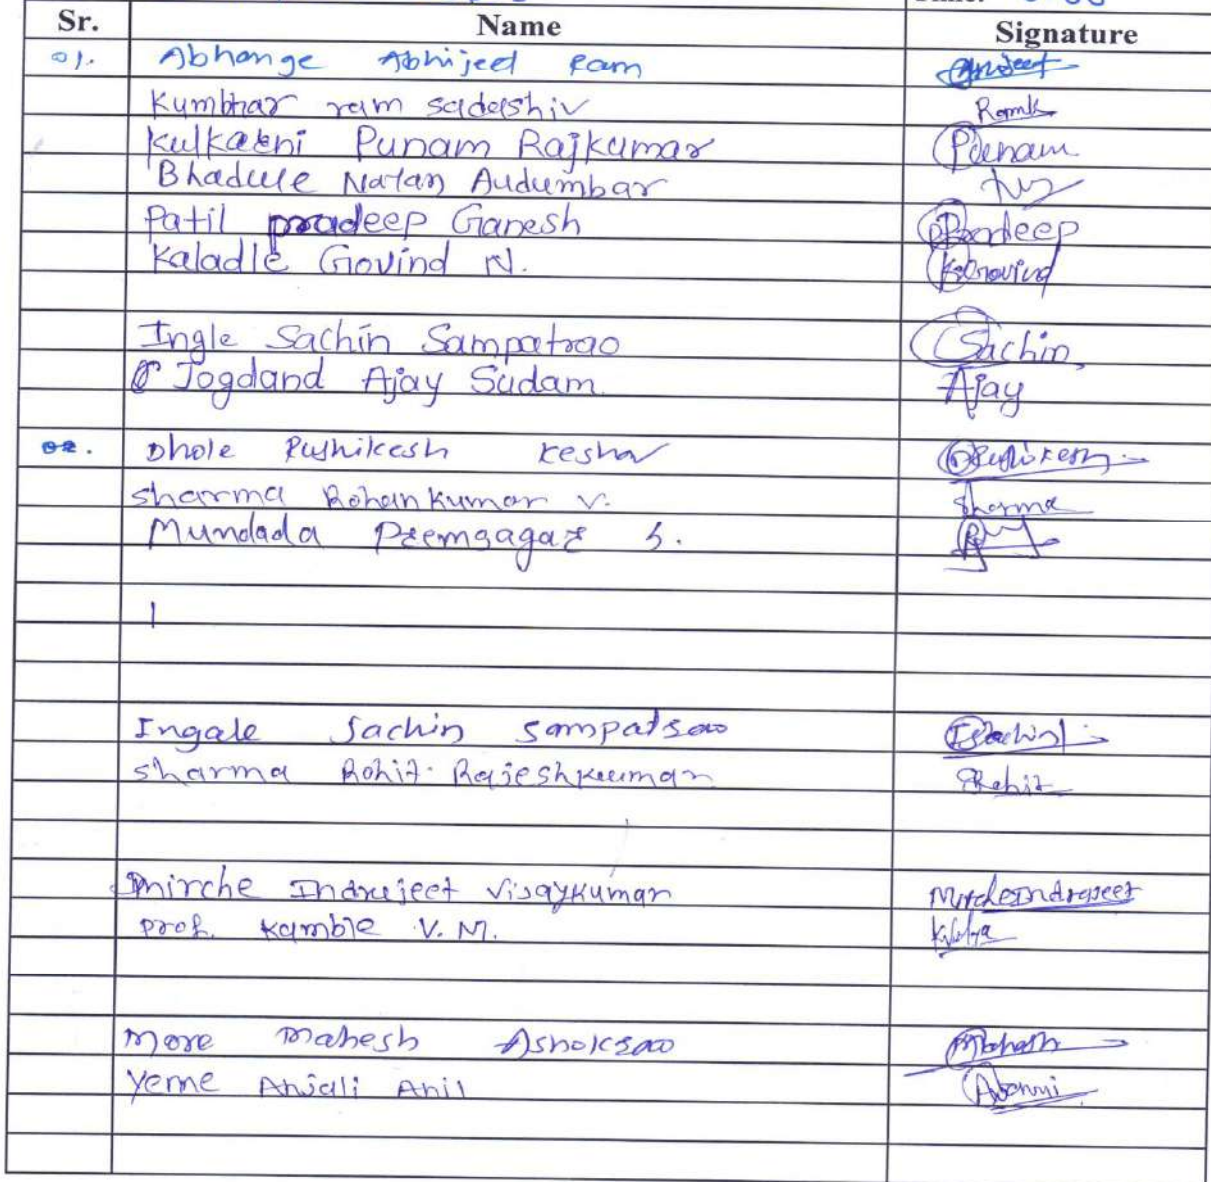 Sr. Name Signature
01. Abhange Abhijeet Ram
Kumbhar ram sadashiv Ramk
Kulkarni Punam Rajkumar Poenam
Bhadule Natan Audumbar
Patil pradeep Ganesh Pradeep
Kaladle Govind N. K.Govind
Ingle Sachin Sampatrao Sachin
Jogdand Ajay Sudam. Ajay
02. Dhole Rushikesh Keshav
Sharma Rohankumar V. Sharma
Mundada Premsagar S.
Ingale Sachin Sampatrao ISachin
Sharma Rohit. Rajeshkumar Rohit
Mirche Indrajeet Vijaykumar MircheIndrajeet
Prof. Kamble V. M.
More Mahesh Ashokrao Mahesh
Yeme Anjali Anil